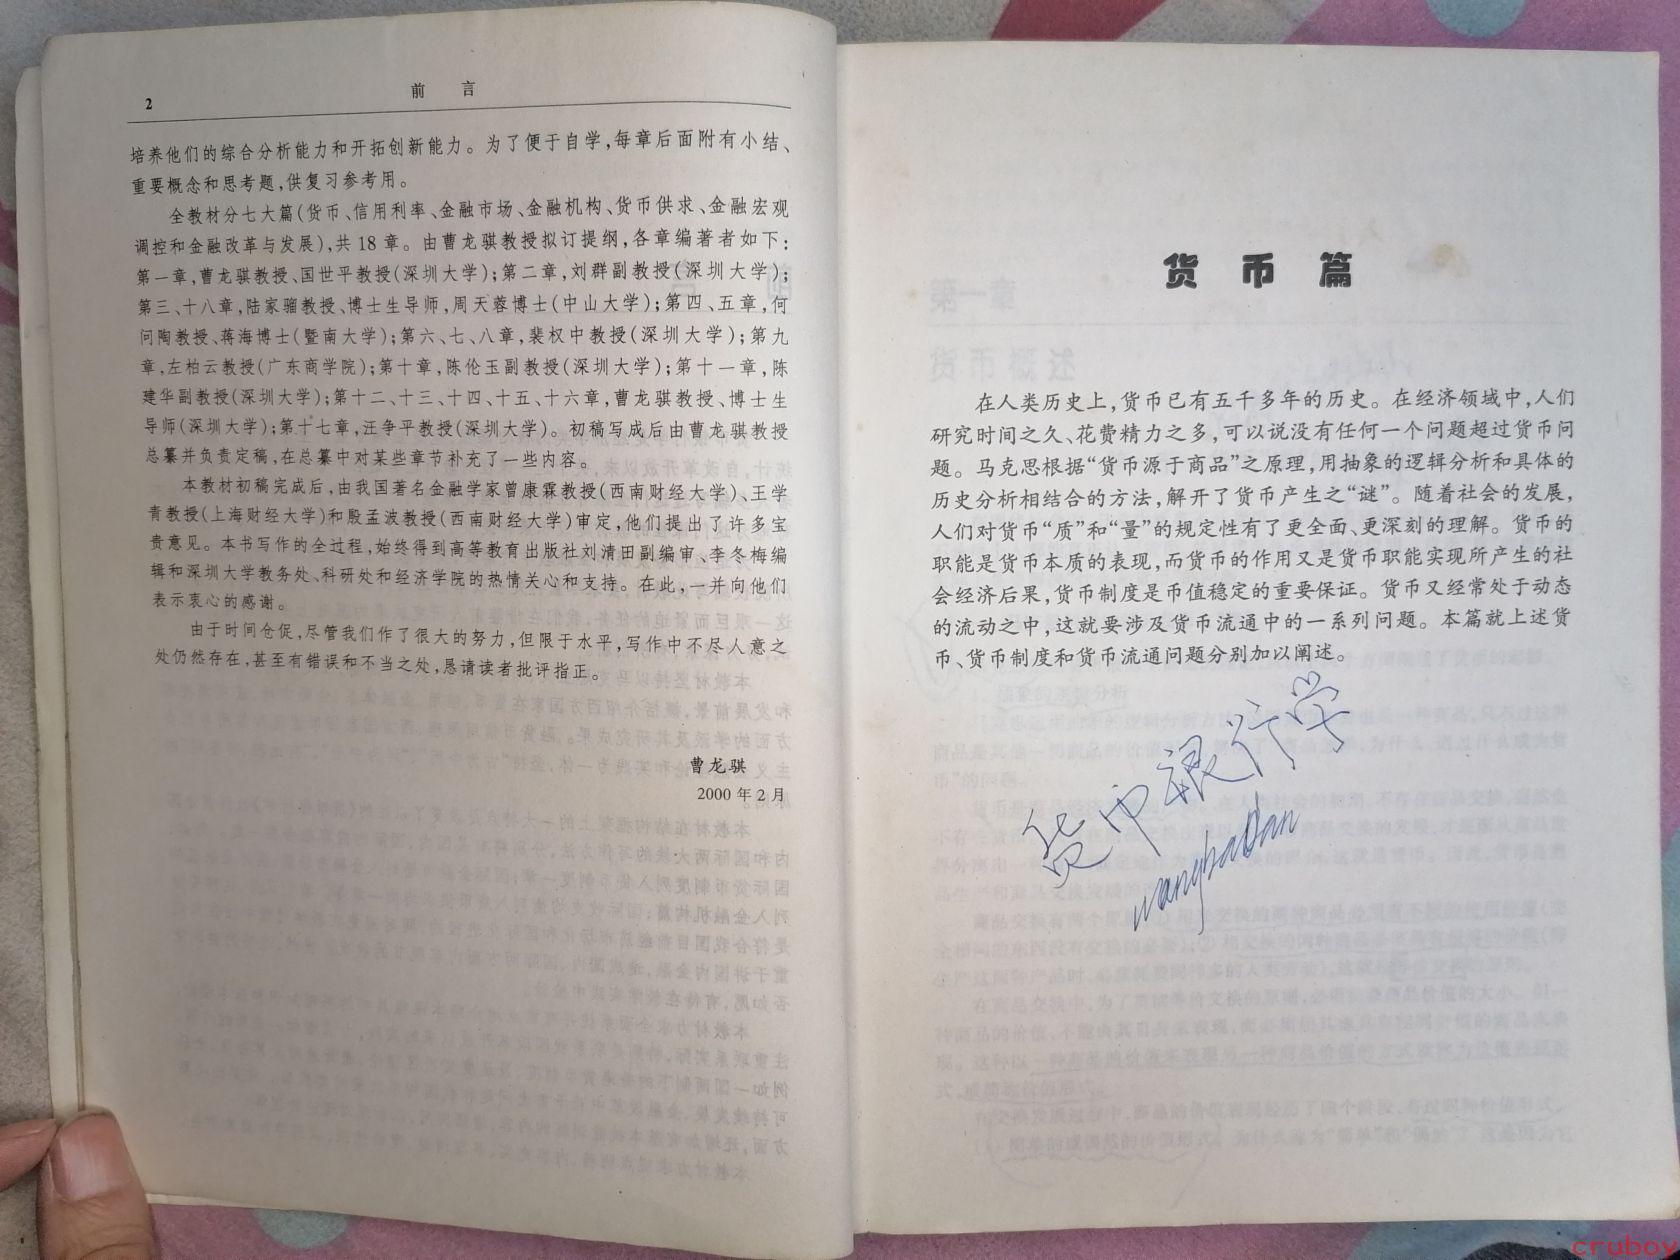 2
前 言
培养他们的综合分析能力和开拓创新能力。为了便于自学,每章后面附有小结、
重要概念和思考题,供复习参考用。
全教材分七大篇(货币、信用利率、金融市场、金融机构、货币供求、金融宏观
调控和金融改革与发展),共18章。由曹龙骐教授拟订提纲,各章编著者如下:
第一章,曹龙骐教授、国世平教授(深圳大学);第二章,刘群副教授(深圳大学);
第三、十八章,陆家骝教授、博士生导师,周天蓉博士(中山大学);第四、五章,何
问陶教授、蒋海博士(暨南大学);第六、七、八章,裴权中教授(深圳大学);第九
章,左柏云教授(广东商学院);第十章,陈伦玉副教授(深圳大学);第十一章,陈
建华副教授(深圳大学);第十二、十三、十四、十五、十六章,曹龙骐教授、博士生
导师(深圳大学);第十七章,汪争平教授(深圳大学)。初稿写成后由曹龙骐教授
总纂并负责定稿,在总纂中对某些章节补充了一些内容。
本教材初稿完成后,由我国著名金融学家曾康霖教授(西南财经大学)、王学
青教授(上海财经大学)和殷孟波教授(西南财经大学)审定,他们提出了许多宝
贵意见。本书写作的全过程,始终得到高等教育出版社刘清田副编审、李冬梅编
辑和深圳大学教务处、科研处和经济学院的热情关心和支持。在此,一并向他们
表示衷心的感谢。
由于时间仓促,尽管我们作了很大的努力,但限于水平,写作中不尽人意之
处仍然存在,甚至有错误和不当之处,恳请读者批评指正。
曹龙骐
2000年2月
货币篇
在人类历史上,货币已有五千多年的历史。在经济领域中,人们
研究时间之久、花费精力之多,可以说没有任何一个问题超过货币问
题。马克思根据“货币源于商品”之原理,用抽象的逻辑分析和具体的
历史分析相结合的方法,解开了货币产生之“谜”。随着社会的发展,
人们对货币“质”和“量”的规定性有了更全面、更深刻的理解。货币的
职能是货币本质的表现,而货币的作用又是货币职能实现所产生的社
会经济后果,货币制度是币值稳定的重要保证。货币又经常处于动态
的流动之中,这就要涉及货币流通中的一系列问题。本篇就上述货
币、货币制度和货币流通问题分别加以阐述。
货币银行学
cruboy